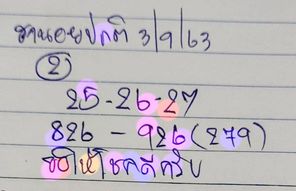 ฮานอยปกติ 3/9/63
2
25-26-27
826 - 926 (279)
ขอให้โชคดีครับ